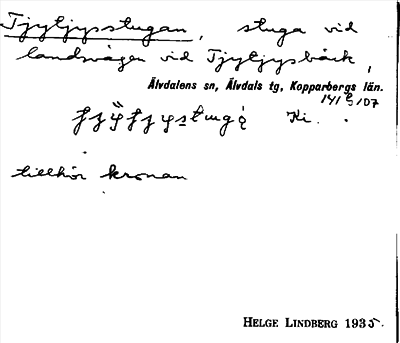 Tjyljysstugan, stuga vid
landsvägen vid Tjyljysbäck,
Älvdalens sn, Älvdals tg, Kopparbergs län.
Ki.
tillhör kronan
HELGE LINDBERG 1935.